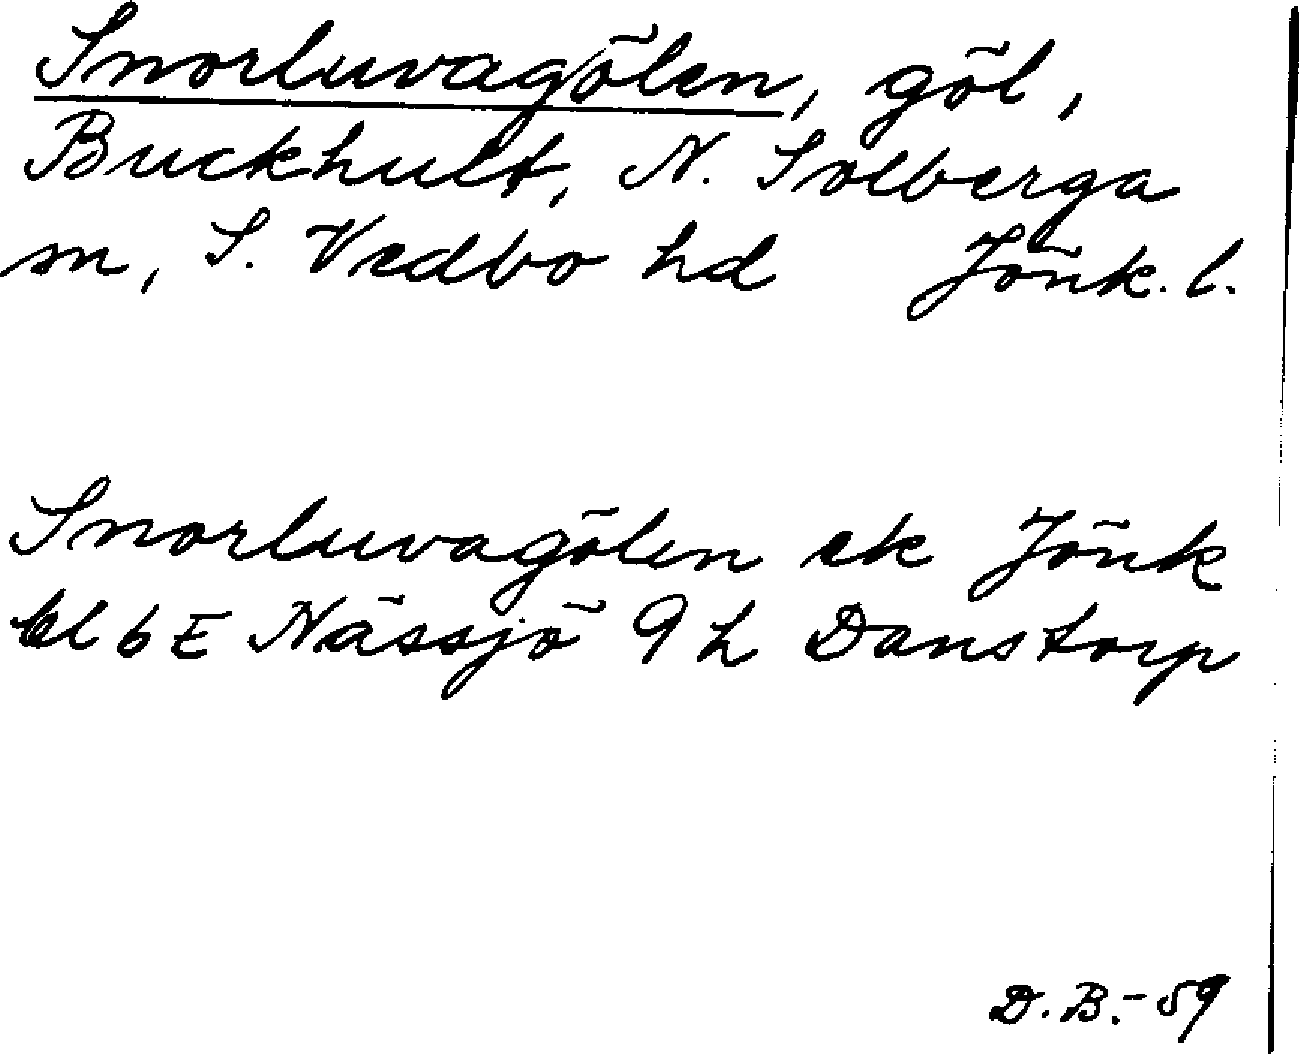 Snorluvagölen, göl,
Buckhult, N. Solberga
sn, S. Vedbo hd Jönk. l.
Snorluvagölen ek Jönk
bl 6E Nässjö 9 h Danstorp
D. B. - 59